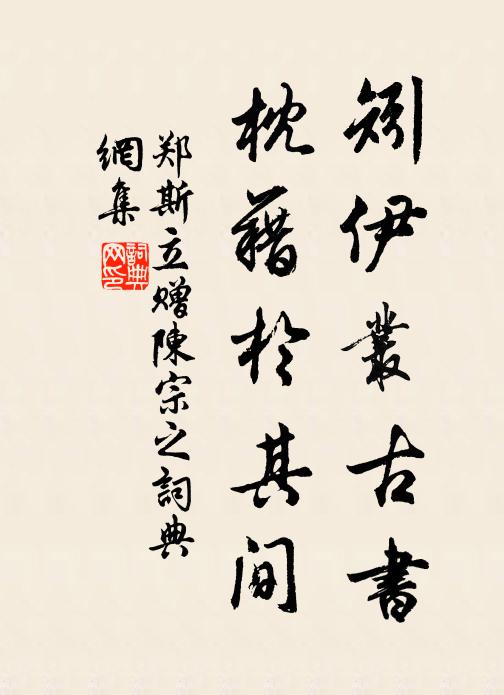 矧伊叢古書
枕藉於其間
郑斯立赠陳宗之詞典
網集
詞典
网印